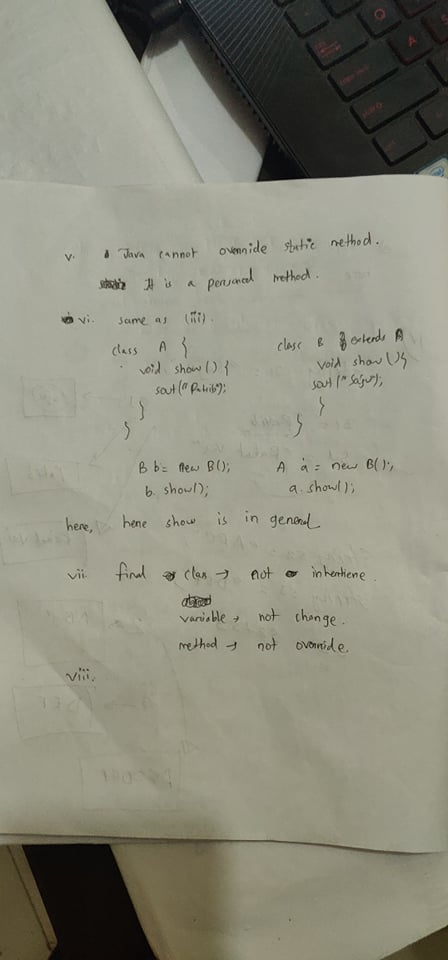 v. Java cannot override static method.
It is a personal method.
vi. same as (iii).
class A {
void show () {
sout("Rakib");
}
}
class B extends A
void show (){
sout("Saju");
}
}
B b = new B();
b. show();
A a = new B();
a. show();
here, here show is in general
vii. final clas → not inheriene.
variable → not change.
method → not override.
viii.